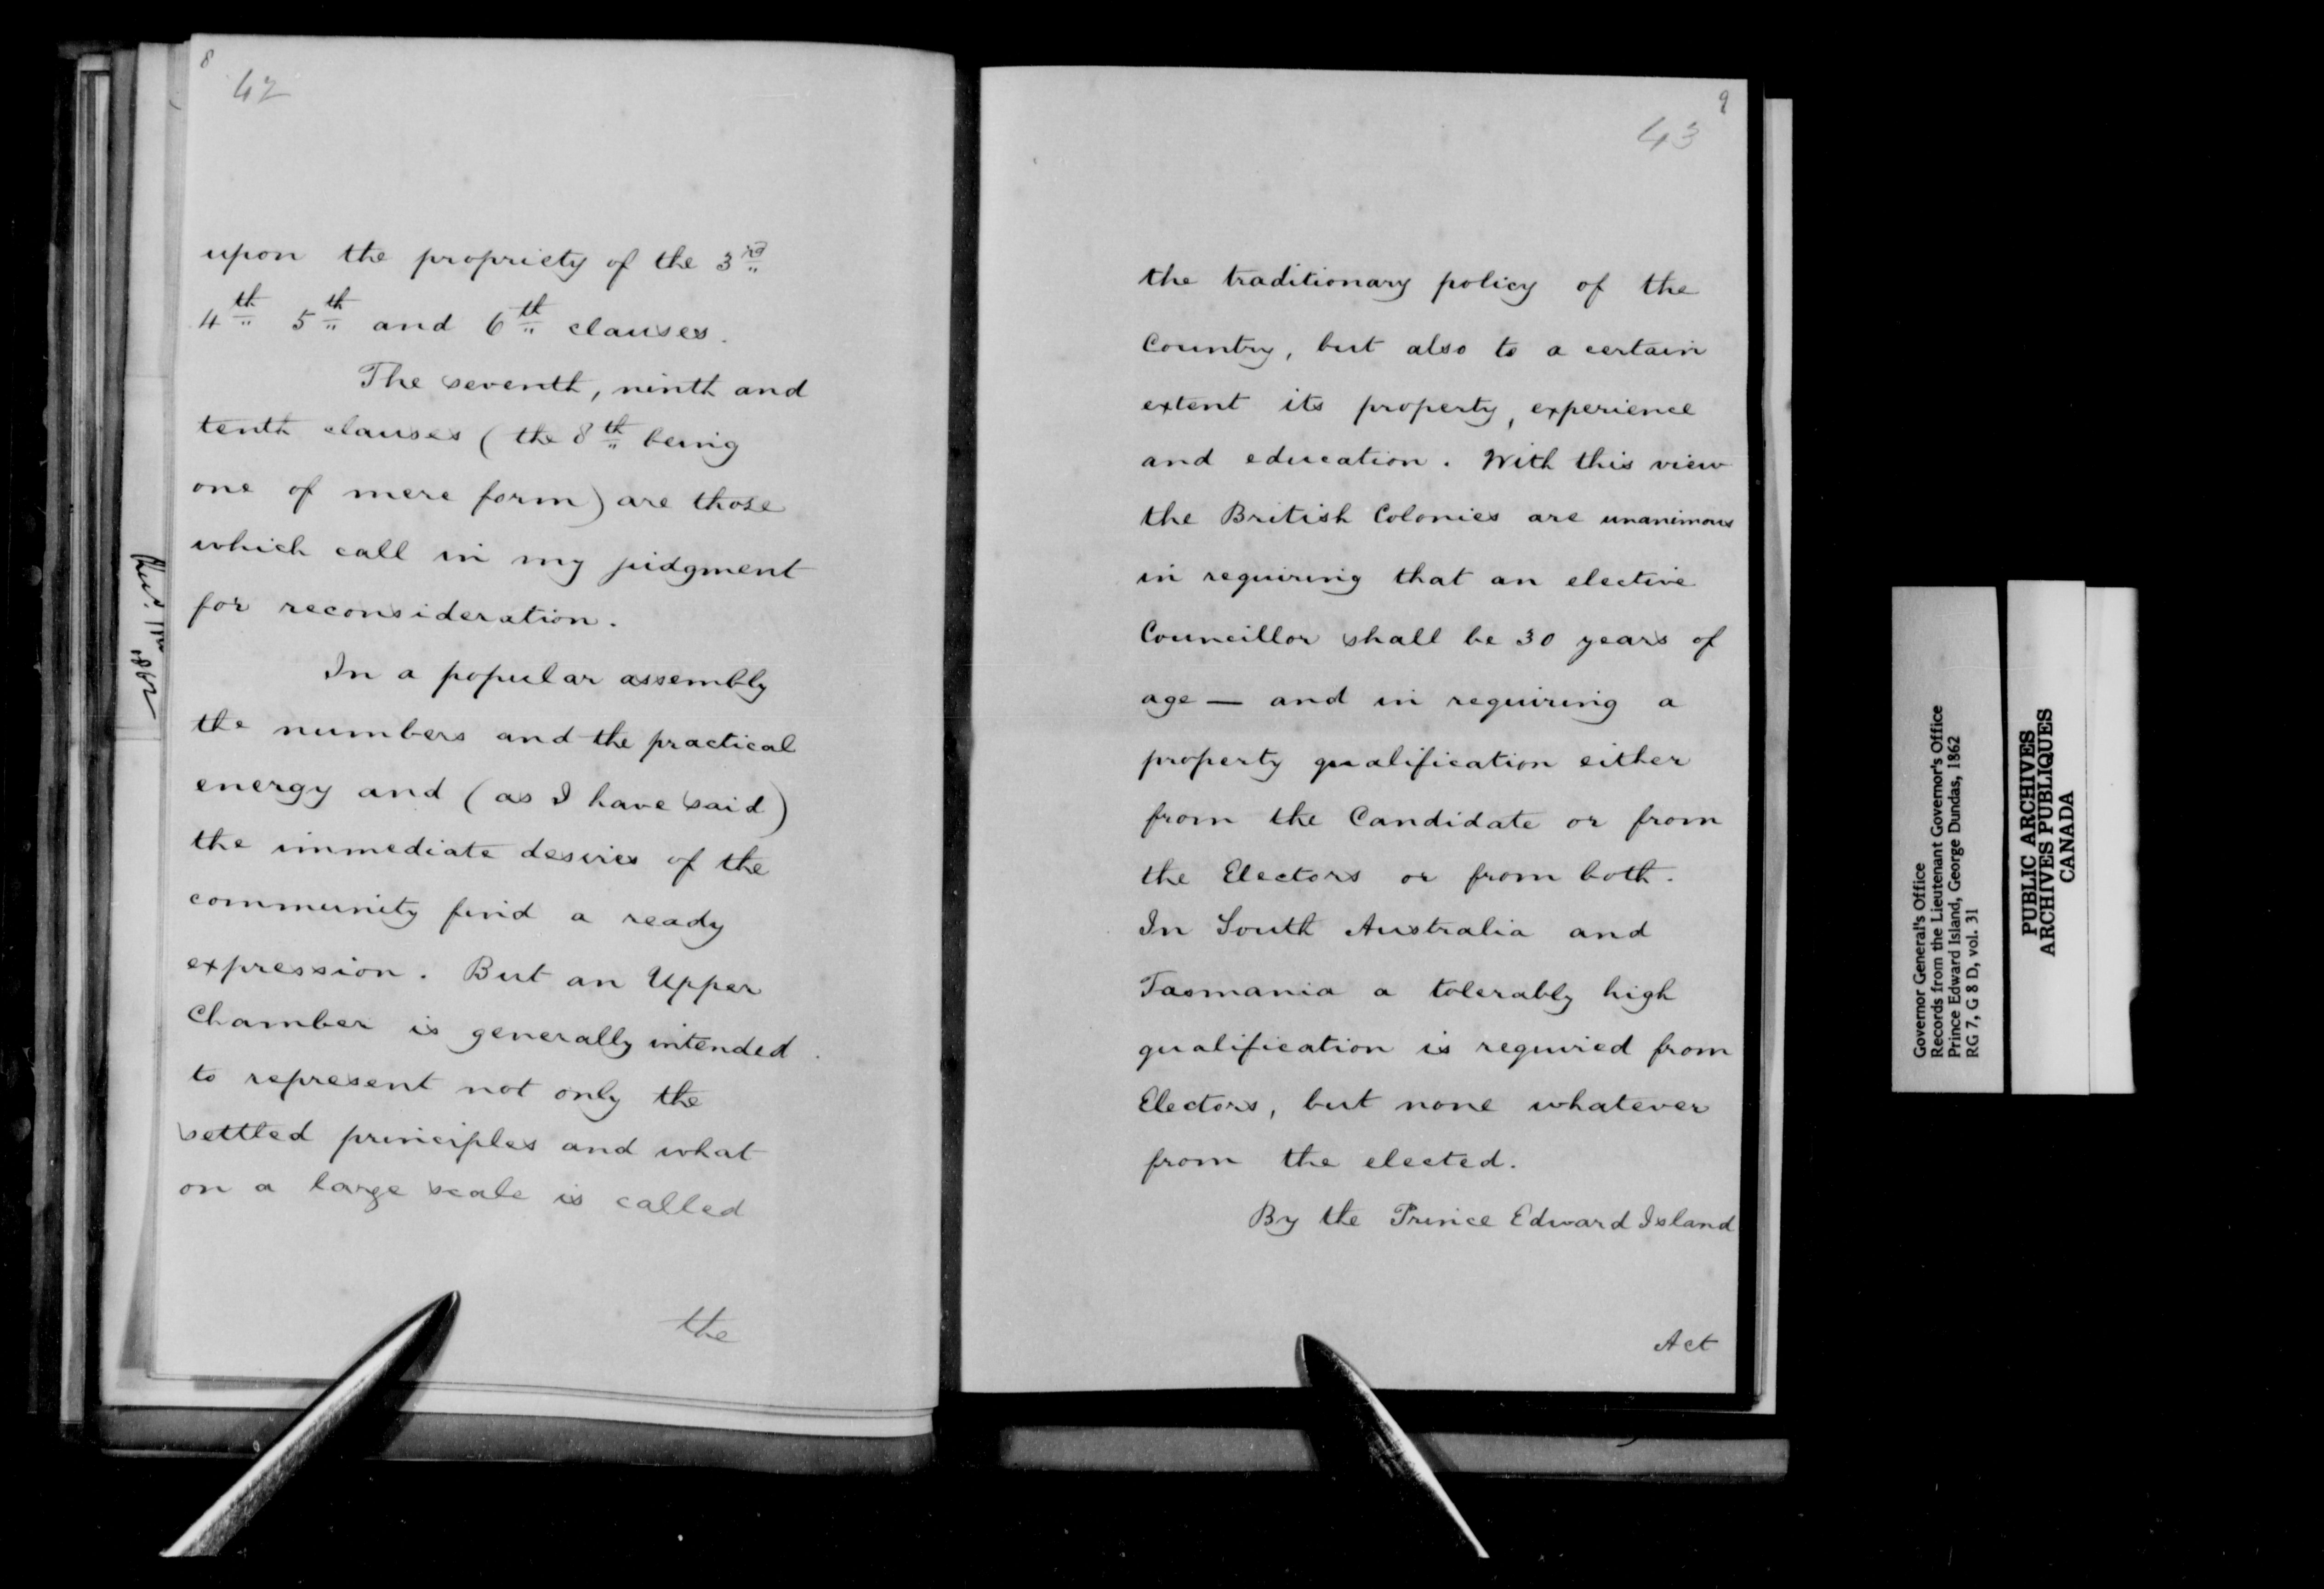 8
42
upon the propriety of the 3rd
4th 5th and 6th clauses.
The seventh, ninth and
tenth clauses (the 8th being
one of mere form) are those
which call in my judgment
for reconsideration.
In a popular assembly
the numbers and the practical
energy and (as I have said)
the immediate desires of the
community find a ready
expression. But an Upper
Chamber is generally intended
to represent not only the
settled principles and what
on a large scale is called
the
9
43
the traditionary policy of the
Country, but also to a certain
extent its property, experience
and education. With this view
the British Colonies are unanimous
in requiring that an elective
Councillor shall be 30 years of
age — and in requiring a
property qualification either
from the Candidate or from
the Electors or from both.
In South Australia and
Tasmania a tolerably high
qualification is required from
Electors, but none whatever
from the elected.
By the Prince Edward Island
Act
Governor General's Office
Records from the Lieutenant Governor's Office
Prince Edward Island, George Dundas, 1862
RG 7, G 8 D, vol. 31
PUBLIC ARCHIVES
ARCHIVES PUBLIQUES
CANADA